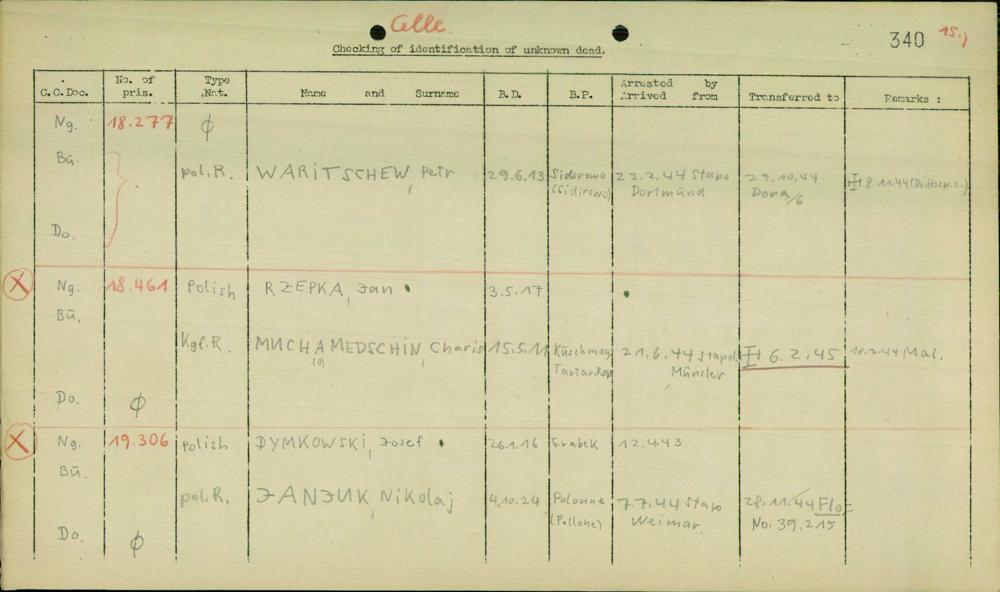 Celle.
Checking of identification of unknown dead.
340 15.)
C.C.Doc. No. of pris. Type Nat. Name and Surname B.D. B.P. Arrested by Arrived from Transferred to Remarks :
Ng. 18.277 ϕ
Bu. pol.R. WARITSCHEW, Petr 29.6.13 Sidorowo 23.2.44 Stapo 29.10.44
(Sidirowo) Dortmund Dora/6 8.11.44
Do.
X Ng. 18.461 Polish RZEPKA, Jan 3.5.17
Bū.
Kgf.R. MUCHAMEDSCHIN, Charis 15.5.11 21.6.44 Stapol 6.2.45 10.2.44 Mal.
(o) Münster
Do. ϕ
X Ng. 19.306 polish DYMKOWSKI, Josef 26.1.16 Grabek 12.4.43
Bū.
pol.R. JANJUK, Nikolaj 4.10.24 Polonne 7.7.44 Stapo 28.11.44 Flo
(Pollone) Weimar No. 39.215
Do. ϕ